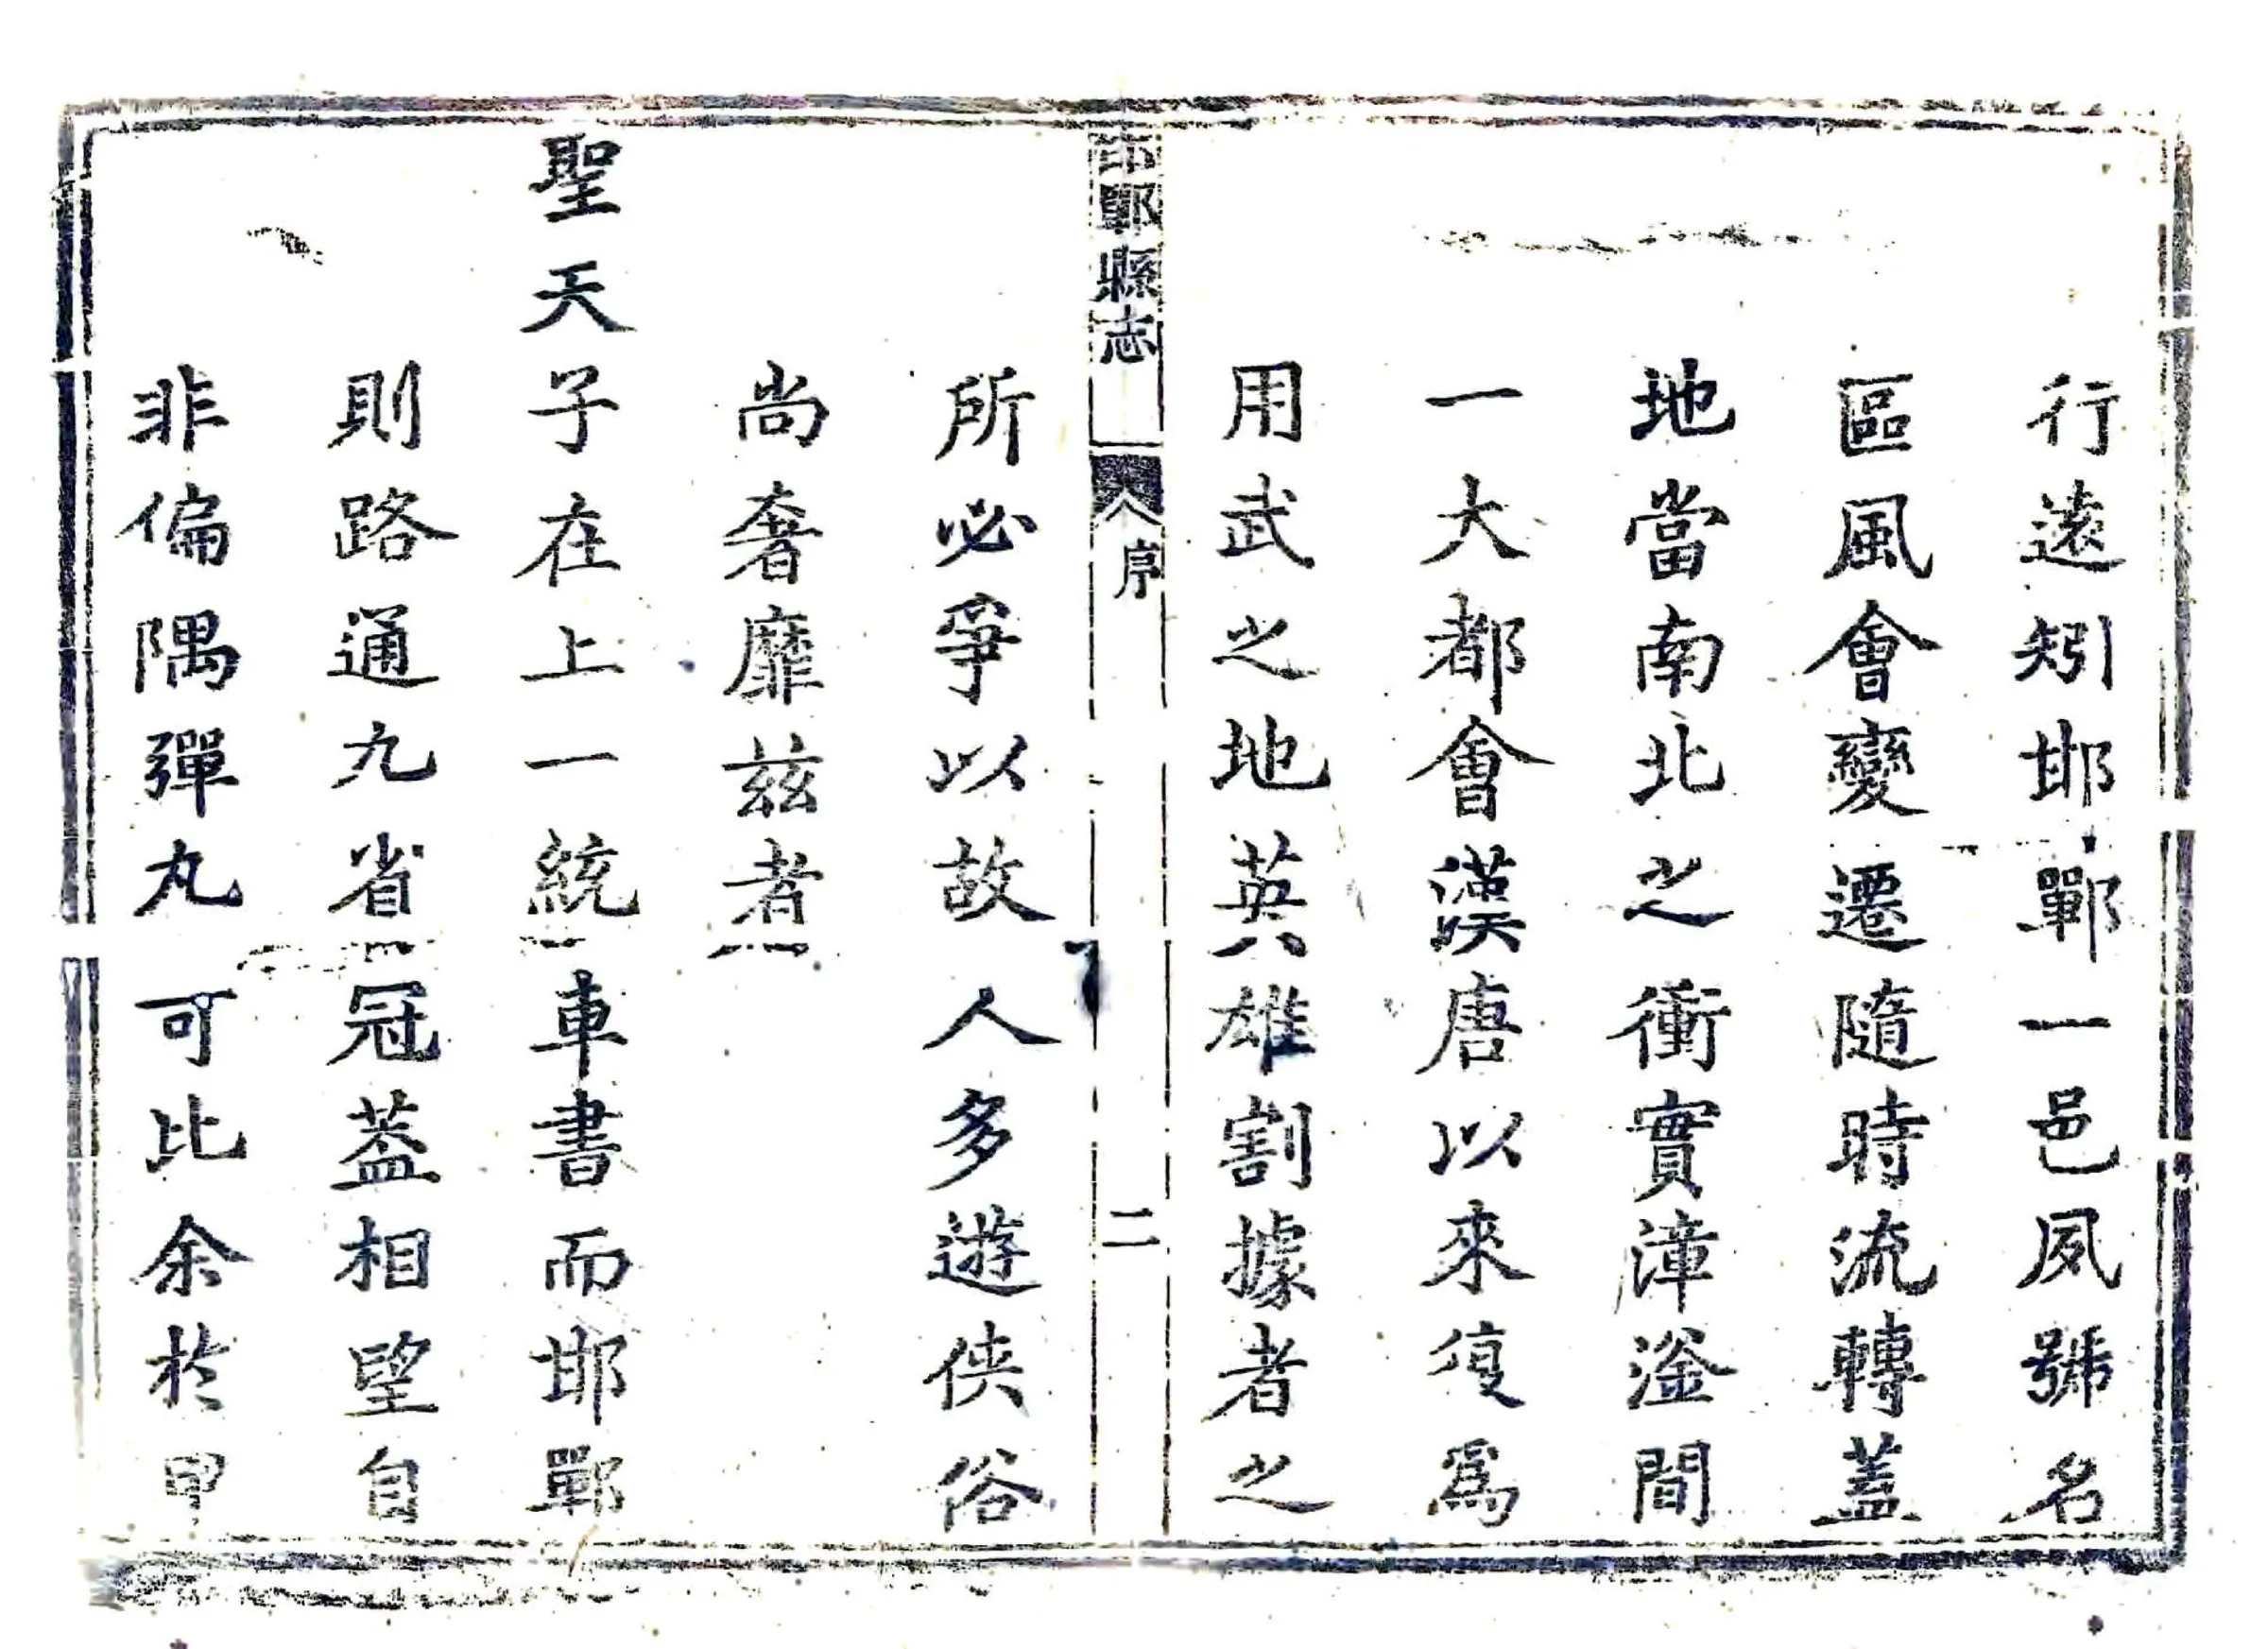 行遠矧邯鄲一邑夙號名
區風會變遷隨時流轉蓋
地當南北之衝實漳滏間
一大都會漢唐以來復爲
用武之地英雄割據者之
邯鄲縣志 序 二
所必爭以故人多遊俠俗
尚奢靡兹者
聖天子在上一統車書而邯鄲
則路通九省冠葢相望自
非偏隅彈丸可比余於甲